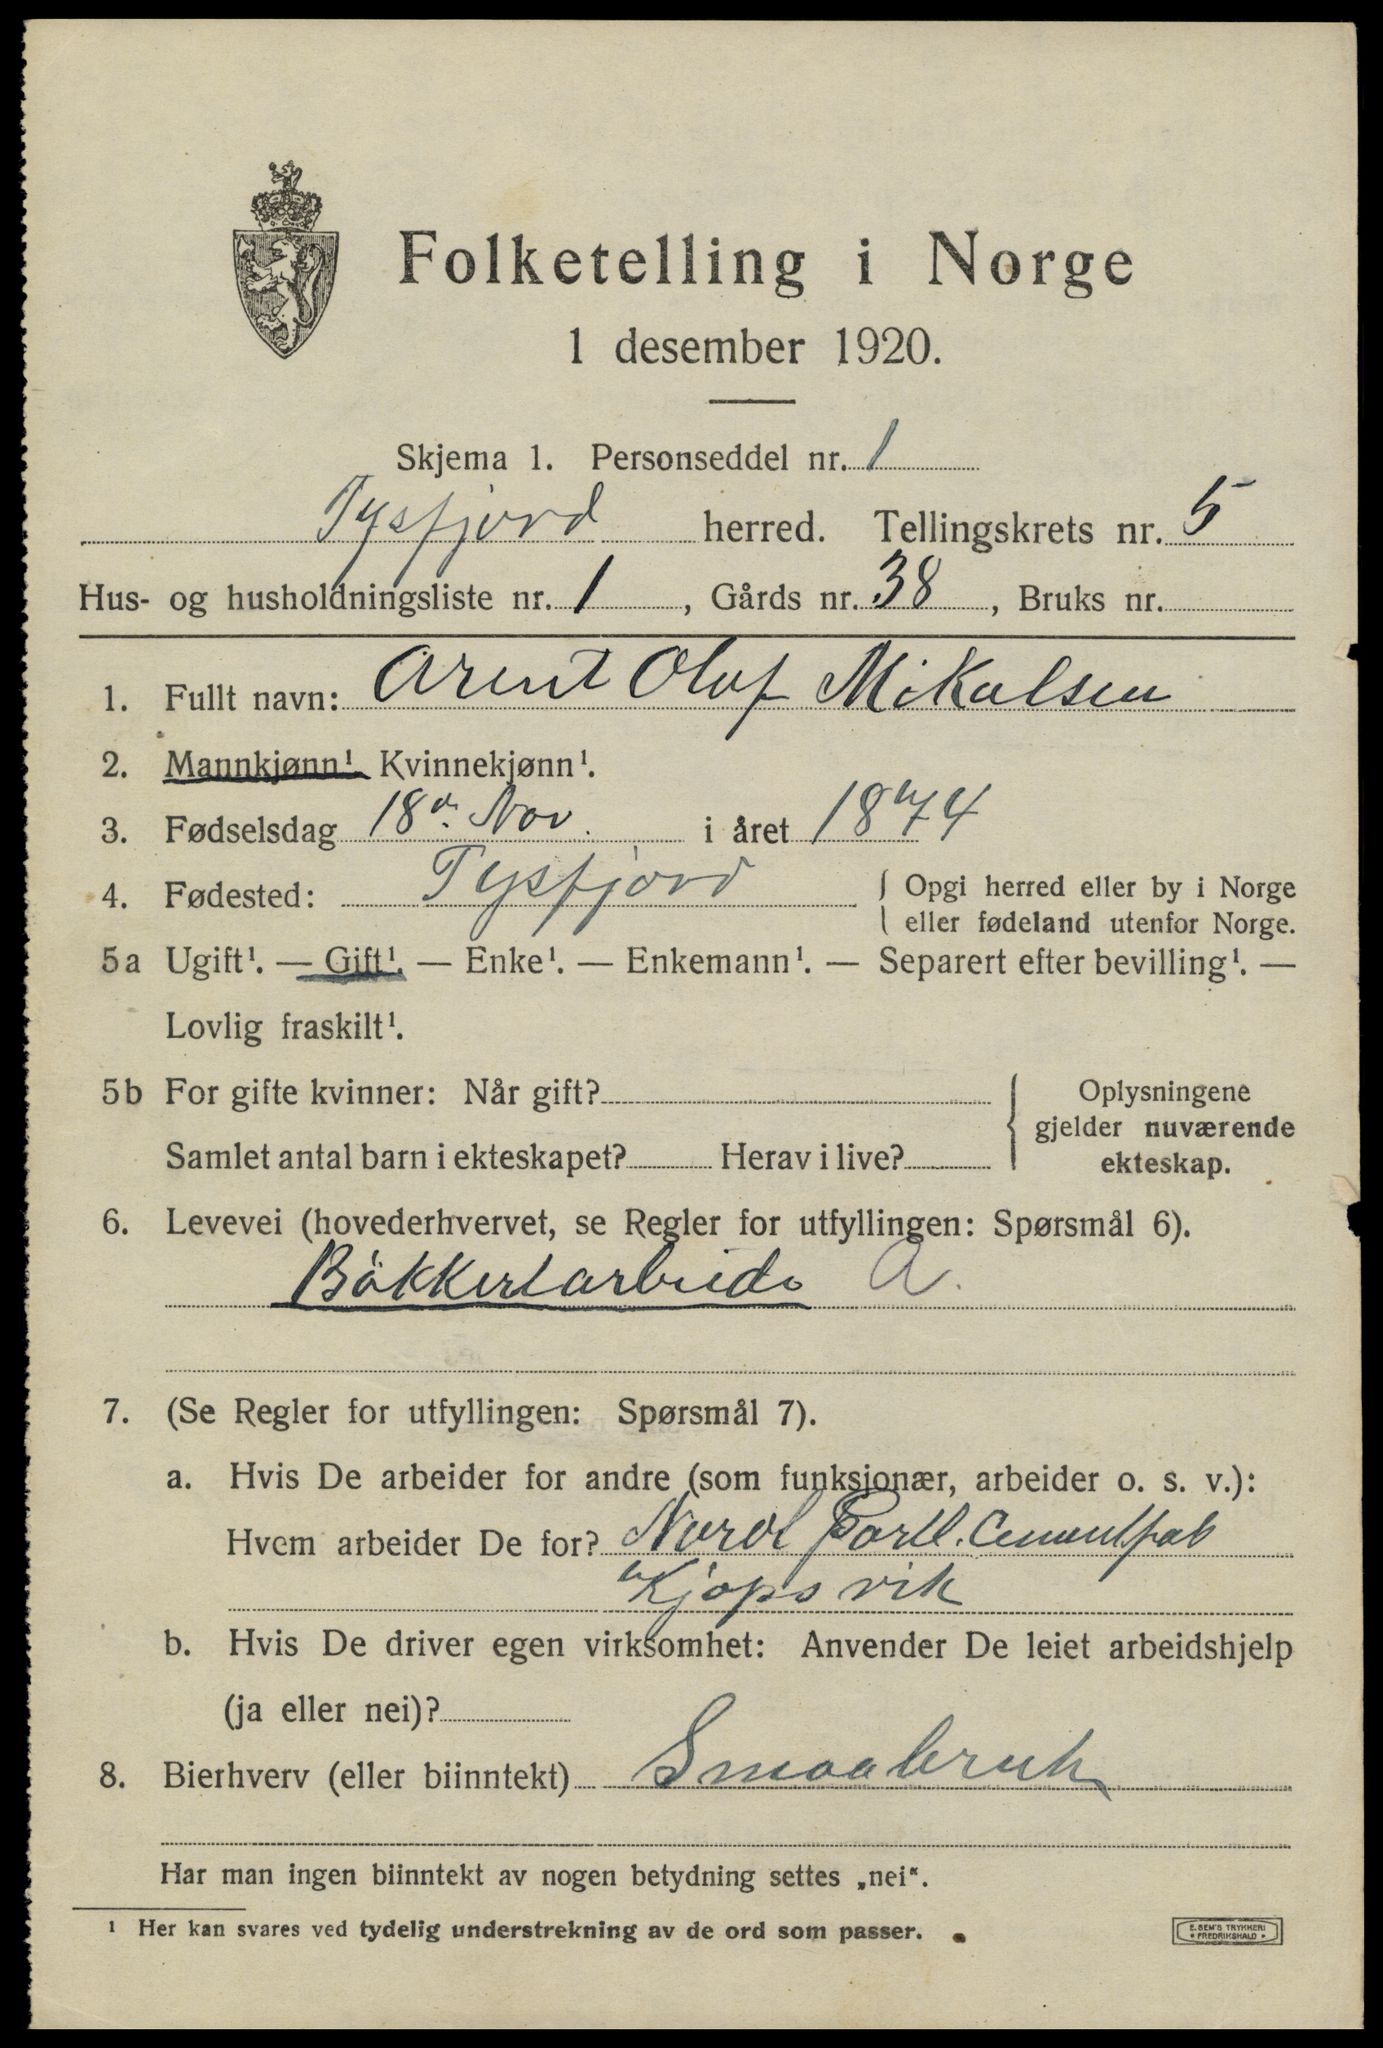 Folketelling i Norge
1 desember 1920.
Skjema 1. Personseddel nr. 1
Tysfjord herred. Tellingskrets nr. 5
Hus- og husholdningsliste nr. 1, Gårds nr. 38, Bruks nr.
1. Fullt navn: Arent Oluf Mikalsen
2. Mannkjønn¹. Kvinnekjønn¹.
3. Fødselsdag 18de Nov. i året 1874
4. Fødested: Tysfjord { Opgi herred eller by i Norge
eller fødeland utenfor Norge.
5a Ugift¹. — Gift¹. — Enke¹. — Enkemann¹. — Separert efter bevilling¹. —
Lovlig fraskilt¹.
5b For gifte kvinner: Når gift? { Oplysningene
gjelder nuværende
Samlet antal barn i ekteskapet? Herav i live? ekteskap.
6. Levevei (hovederhvervet, se Regler for utfyllingen: Spørsmål 6).
Bökkerarbeide A.
7. (Se Regler for utfyllingen: Spørsmål 7).
a. Hvis De arbeider for andre (som funksjonær, arbeider o. s. v.):
Hvem arbeider De for? Nordl Portl. Cementfab
Kjøpsvik
b. Hvis De driver egen virksomhet: Anvender De leiet arbeidshjelp
(ja eller nei)?
8. Bierhverv (eller biinntekt) Smaabruk
Har man ingen biinntekt av nogen betydning settes „nei".
¹ Her kan svares ved tydelig understrekning av de ord som passer.
E. SEM'S TRYKKERI
• FREDRIKSHALD •